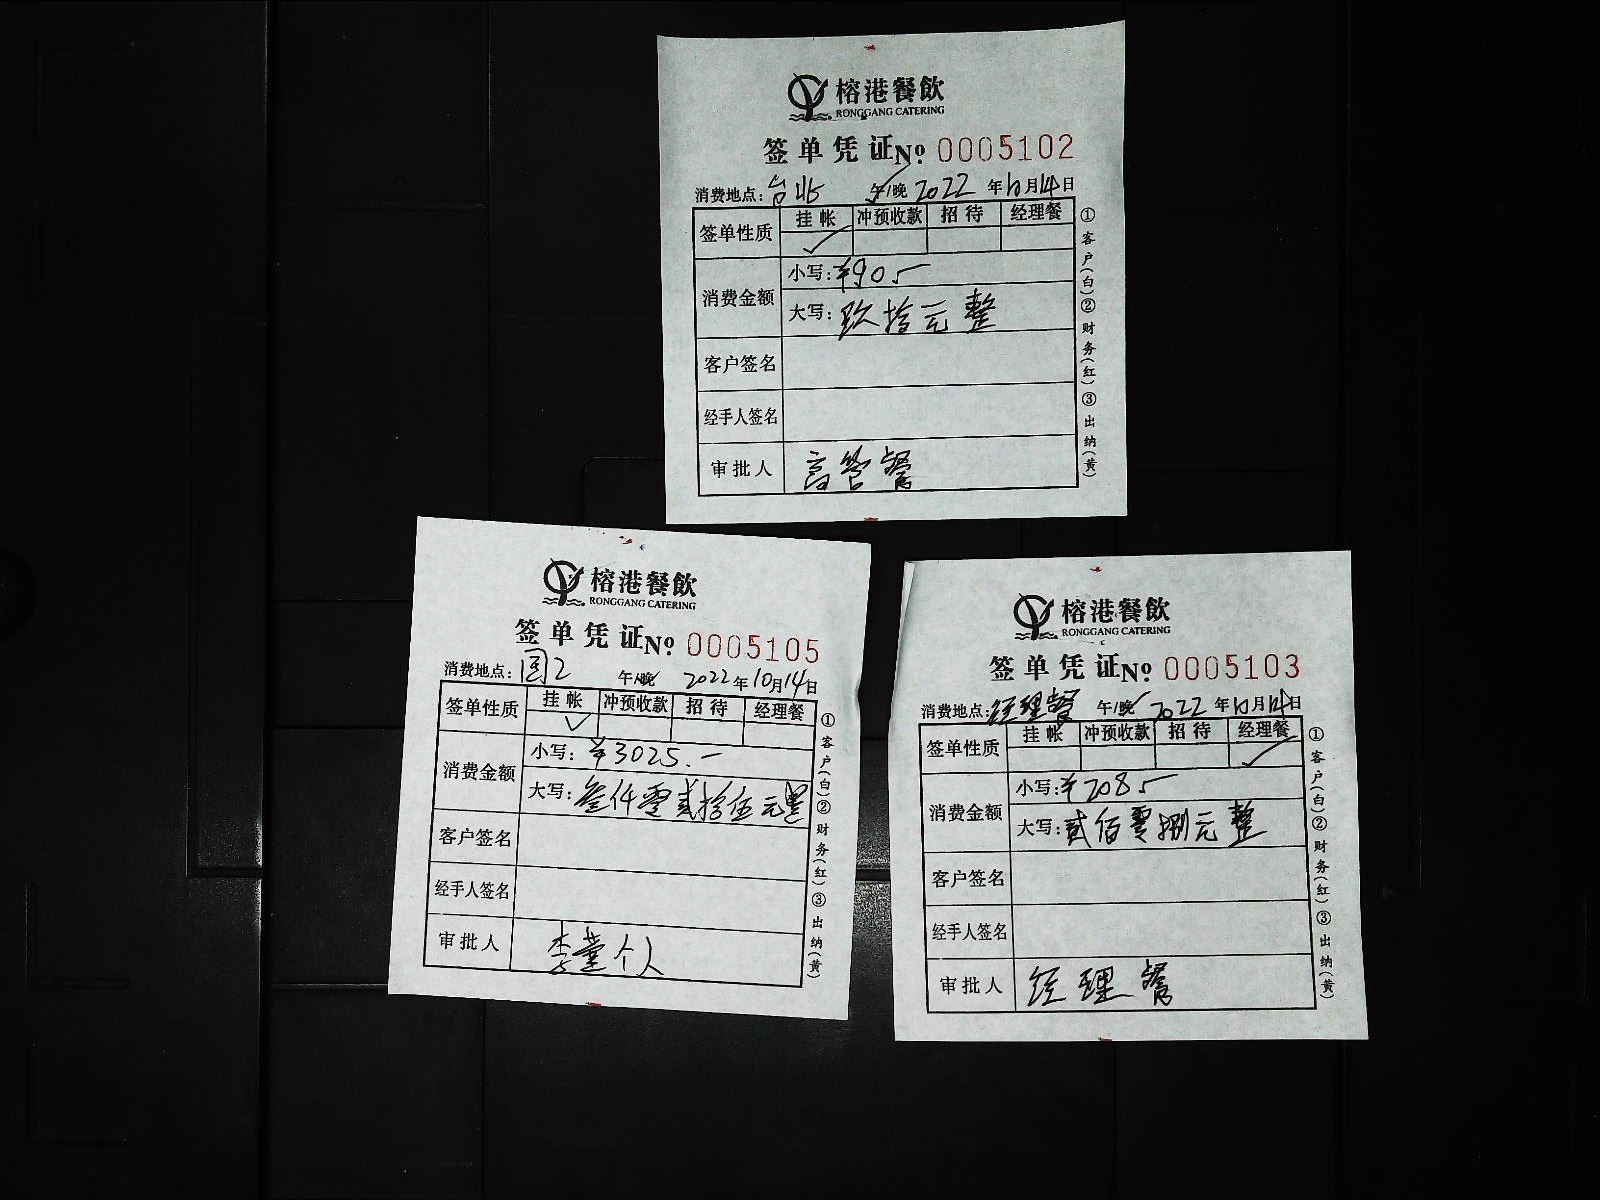 榕港餐飲
RONGGANG CATERING
签单凭证№ 0005102
消费地点:台北 午/晚 2022年10月14日
签单性质 挂帐 冲预收款 招待 经理餐
✓
消费金额 小写:¥90.-
大写:玖拾元整
客户签名
经手人签名
审批人 高管餐
①客户(白)②财务(红)③出纳(黄)
榕港餐飲
RONGGANG CATERING
签单凭证№ 0005105
消费地点:国2 午/晚 2022年10月14日
签单性质 挂帐 冲预收款 招待 经理餐
✓
消费金额 小写:¥3025.-
大写:叁仟零贰拾伍元整
客户签名
经手人签名
审批人 李 个人
①客户(白)②财务(红)③出纳(黄)
榕港餐飲
RONGGANG CATERING
签单凭证№ 0005103
消费地点:经理餐 午/晚 2022年10月14日
签单性质 挂帐 冲预收款 招待 经理餐
✓
消费金额 小写:¥208.-
大写:贰佰零捌元整
客户签名
经手人签名
审批人 经理餐
①客户(白)②财务(红)③出纳(黄)